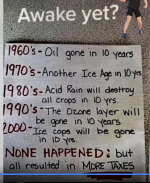 Awake yet?
1960's - Oil gone in 10 years
1970's - Another Ice Age in 10 yrs
1980's - Acid Rain will destroy
all crops in 10 yrs.
1990's - The Ozone layer will
be gone in 10 years
2000 - Ice caps will be gone
in 10 yrs.
NONE HAPPENED; but
all resulted in MORE TAXES